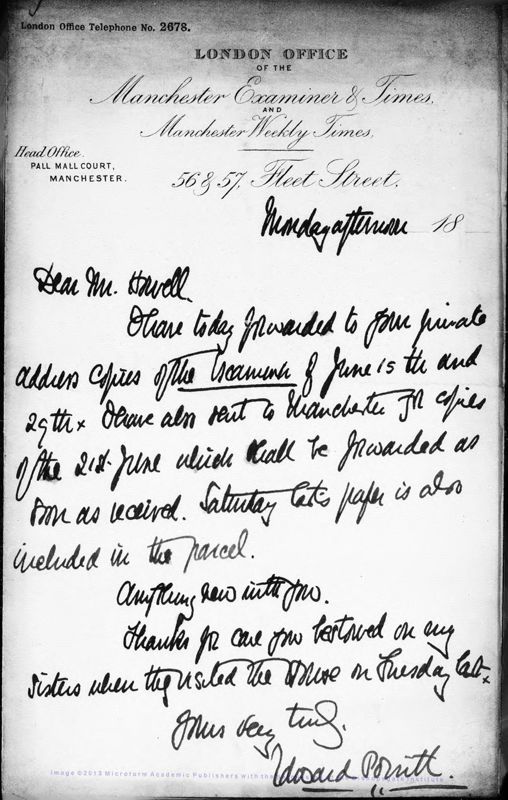 London Office Telephone No. 2678.
LONDON OFFICE
OF THE
Manchester Examiner & Times,
AND
Manchester Weekly Times,
Head Office.
PALL MALL COURT,
MANCHESTER.
56 & 57, Fleet Street.
Monday afternoon 18
Dear Mr. Howell.
I have today forwarded to your private
address copies of the Examiner of June 15th and
29th. I have also sent to Manchester for copies
of the 21st June which shall be forwarded as
soon as received. Saturday last's paper is also
included in the parcel.
Anything new with you.
Thanks for care you bestowed on my
sisters when they visited the House on Tuesday last.
Yours very truly.
Edward Porritt.
Image ©2013 Microform Academic Publishers with the Bishopsgate Institute